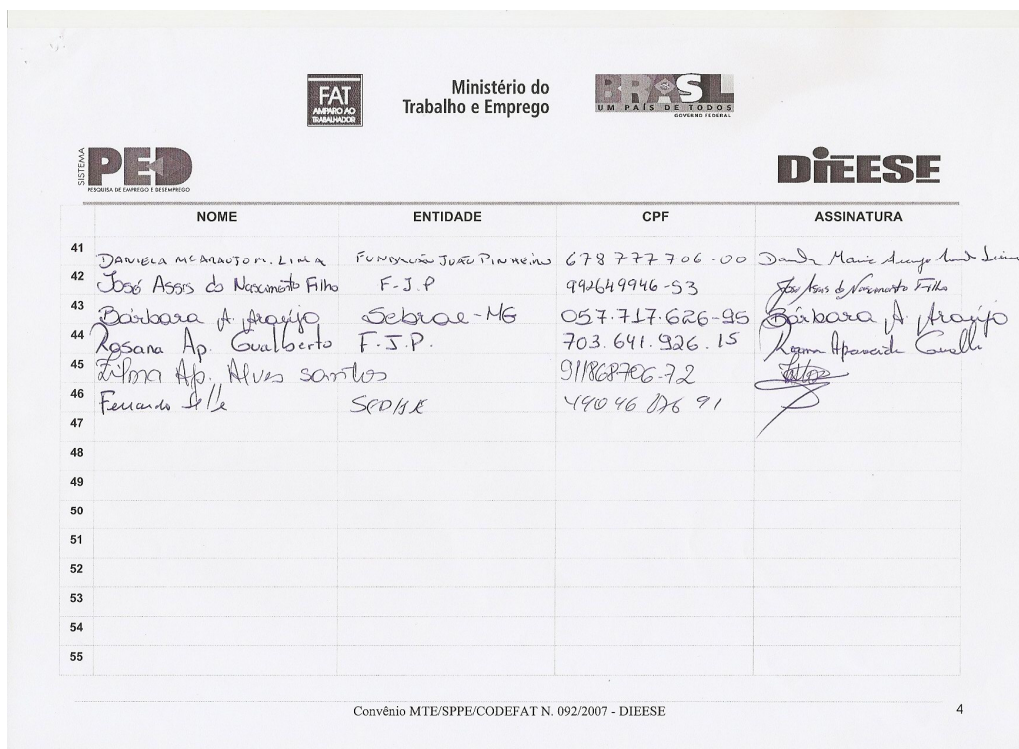 FAT
AMPARO AO
TRABALHADOR
Ministério do
Trabalho e Emprego
BRASIL
UM PAÍS DE TODOS
GOVERNO FEDERAL
SISTEMA
PED
PESQUISA DE EMPREGO E DESEMPREGO
DIEESE
NOME ENTIDADE CPF ASSINATURA
41 DANIELA M ARAUJO M. LIMA FUNDAÇÃO JOÃO PINHEIRO 678 777 706-00 Maria Araujo
42 José Assis do Nascimento Filho F-J.P 992649946-53 José Assis do Nascimento Filho
43 Bárbara A. Araújo Sebrae-MG 057.717.626-95 Bárbara A. Araújo
44 Rosana Ap. Gualberto F.J.P. 703.641.926.15 Rosana Aparecida
45 Zilma Ap. Alves santos 911868706-72
46 Fernando
47
48
49
50
51
52
53
54
55
Convênio MTE/SPPE/CODEFAT N. 092/2007 - DIEESE
4